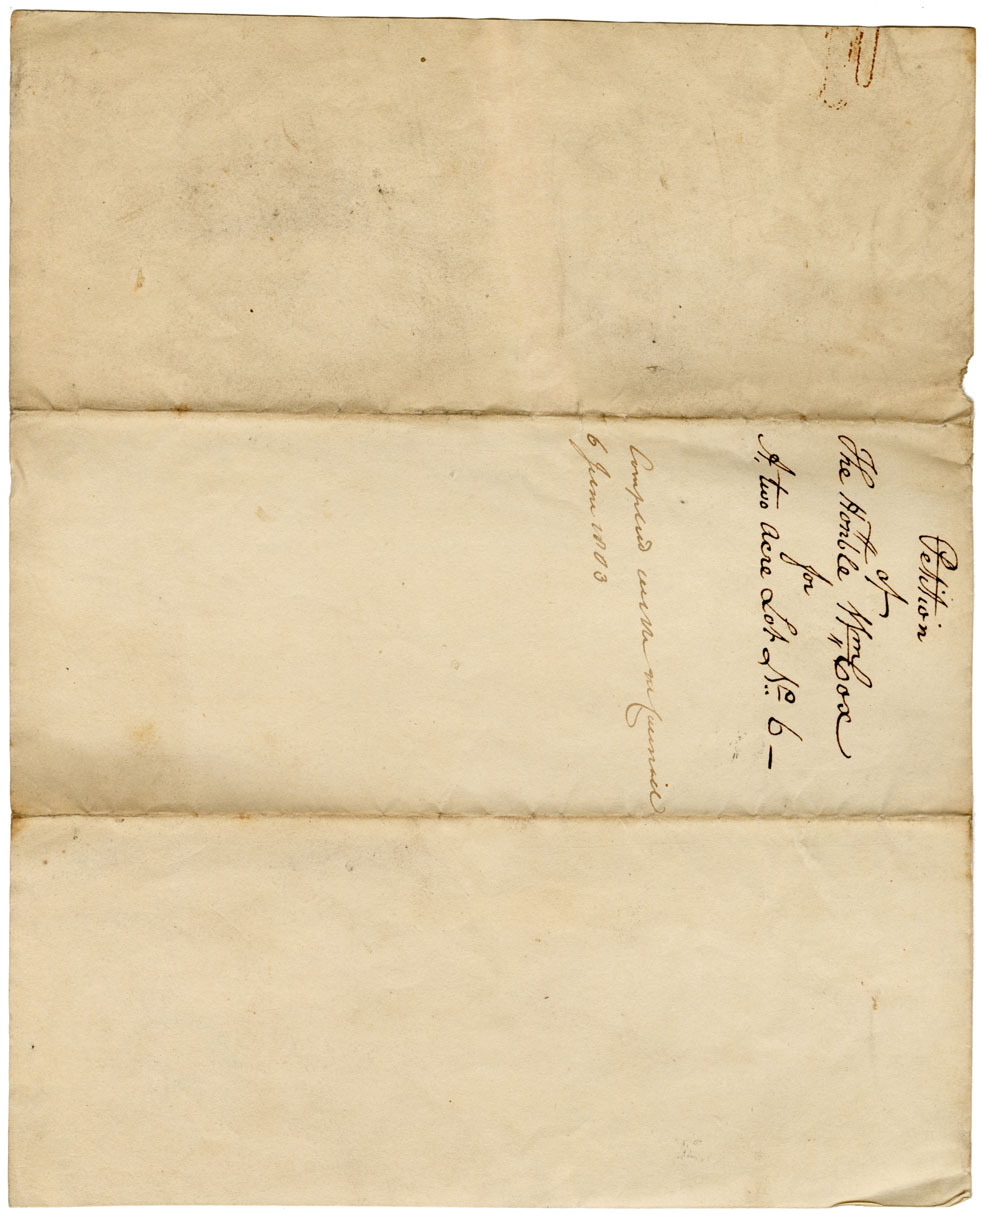 Petition
of
The Honble Wm Cox
for
A two Acre Lot No. 6 —
Complied with in Council
6 June 1803